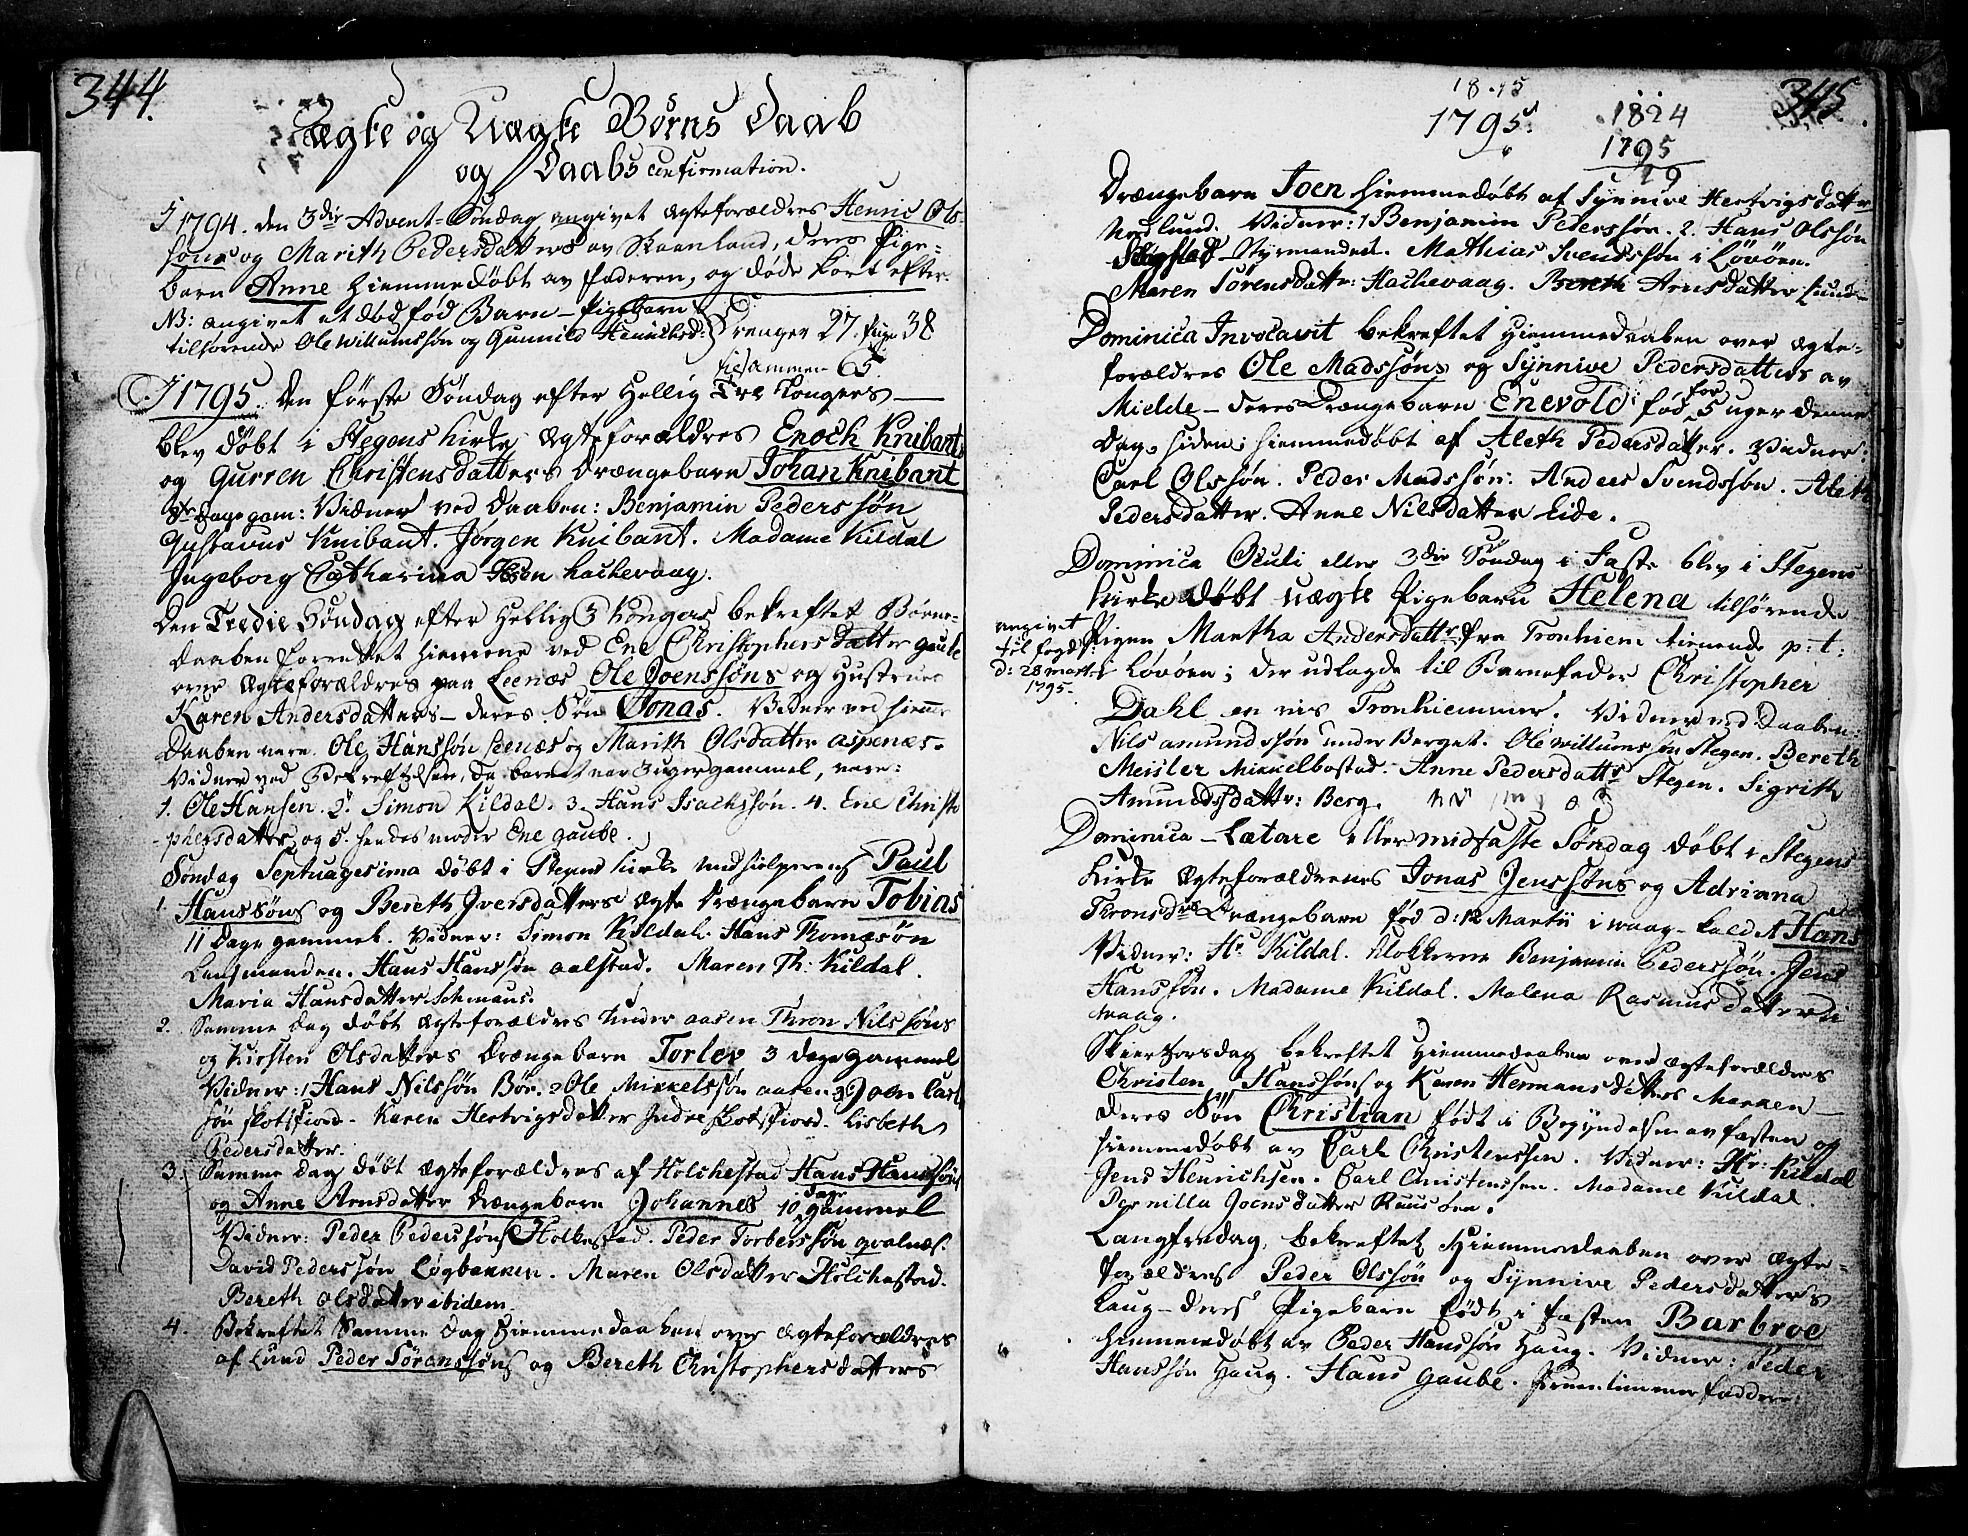 344.
Ægte og Uægte Børns Daab
og Daabs confirmation.
I 1794. den 3die Advent-Søndag angivet Ægteforældres Henric Ols-
søns og Marith Pedersdatters av Skaanland, deres Pige-
barn Anne hiemmedøbt av faderen, og døde kort efter.
NB: angivet et dødfød Barn - Pigebarn
tilhørende Ole Willumssøn og Gunnild Drenger 27. Piger 38
tilsammen 65
I 1795. Den første Søndag efter Hellig Tre Konger
blev døbt i Stegens kirke Ægteforældres Enoch Knibants
og Gurren Christensdatters Drængebarn Johan Knibant
dage gam: Vidner ved Daaben: Benjamin Pederssøn
Gustavus Knibant. Jørgen Knibant. Madame Kildal
Ingeborg Catharina hachevaag.
Den Tredie Søndag efter Hellig 3 Konger bekreftet Børne-
daaben forrettet hiemme ved Ene Christophersdatter gaube
over Ægteforældres paa Leenæs Ole Joenssøns og Hustrues
Karen Andersdatters - deres Søn Jonas. Vidner ved hiemme
daaben vare. Ole Hanssøn Leenæs og Marith Olsdatter aspenæs.
Vidner ved Bekreftelsen, da barnet var 3 uger gammel, vare:
1. Ole Hansen. 2. Simon Kildal. 3. Hans Isachssøn. 4. Ene Christo
phersdatter og 5. hendes moder Ene gaube.
Søndag Septuagesima døbt i Stegens kirke medhielperens Paul
1. Hanssøns og Bereth Iversdatters Ægte Drængebarn Tobias
11 Dage gammel. Vidner: Simon Kildal. Hans Thomæsøn
Lensmanden. Hans Hanssøn aalstad. Maren Th: Kildal.
Maria Hansdatter Schmaus.
2. Samme Dag døbt Ægteforældres under aasen Thron Nilssøns
og Kirsten Olsdatters Drængebarn Torlev 3 dage gammel
Vidner: 1 Hans Nilssøn Bør. 2 Ole Mikkelssøn aasen 3 Joen Carl
søn skotsfiord. Karen Hertvigsdatter Indre skotsfiord. Lisbeth
Pedersdatter.
3. Samme Dag døbt Ægteforældres af Holchestad Hans Hanssøns
og Anne Arnsdatter Drængebarn Johannes 10 Dage gammel
Vidner: Peder Pederssøn Holkestad. Peder Torberssøn gvalnæs.
David Pederssøn Løgbakken. Maren Olsdatter Holchestad.
Bereth Olsdatter ibidem.
4. Bekreftet Samme Dag Hiemmedaaben over Ægteforældres
af Lund Peder Sørenssøns og Bereth Christophersdatters
345.
18.95
1795.
1824
1795
29
Drængebarn Joen hiemmedøbt af Synnive Hertvigsdatter
Vidner: 1 Benjamin Pederssøn. 2. Hans Olssøn
Styrmanden. Mathias Svendssøn i Løvøen.
Maren Sørensdatter: Hachevaag. Bereth Arnsdatter Lund
Dominica Invocavit bekreftet Hiemmedaaben over Ægte-
forældres Ole Madssøns og Synnive Pedersdatters av
Mielde - deres Drængebarn Enevold: fød for 5 uger denne
Dag, siden hiemmedøbt af Aleth Pedersdatter. Vidner:
Carl Olssøn. Peder Madssøn: Anders Svendssøn. Aleth
Pedersdatter. Anne Nilsdatter Eide.
Dominica Oculi eller 3die Søndag i Faste blev i Stegens
kirke døbt uægte Pigebarn Helena tilhørende
angivet
til fogd:
d: 28 mart:
1795.
Pigen Martha Andersdattr fra Tronhiem tienende p:t:
i Løvøen; der udlagde til Barnefader Christopher
Dahl en vis Tronhiemmer. Vidner ved Daaben:
Nils amundssøn under Berget. Ole Willumssøn Stegen. Bereth
Meisler Mikkelbostad. Anne Pedersdattr Stegen. Sigrith
Amundsdattr: Berg.
Dominica - Lætare eller midfaste Søndag døbt i Stegens
Kirke Ægteforældrenes Jonas Jenssøns og Adriana
Thronsdrs Drængebarn fød d: 12 Martii i waag - kaldet Hans
Vidner: Hr Kildal. klokkeren Benjamin Pederssøn. Jens
Hanssøn. Madame Kildal. Malena Rasmusdatter i
waag.
Skiertorsdag bekreftet Hiemmedaaben over Ægteforældres
Christen Hanssøns og Karen Hermansdatters Marken
deres Søn Christian født i Begyndelsen av fasten og
hiemmedøbt av Carl Christenssen. Vidner: Hr: Kildal
Jens Henrichsen. Carl Christenssen. Madame Kildal.
Pernilla Joensdatter
Langfredag, bekreftet Hiemmedaaben over Ægte-
forældres Peder Olssøn og Synnive Pedersdatters
Laug - deres Pigebarn født i fasten Barbroe
hiemmedøbt av Peder Hanssøn Haug. Vidner: Peder
Hanssøn Haug. Hans Gaube. fruentimmer faddere: